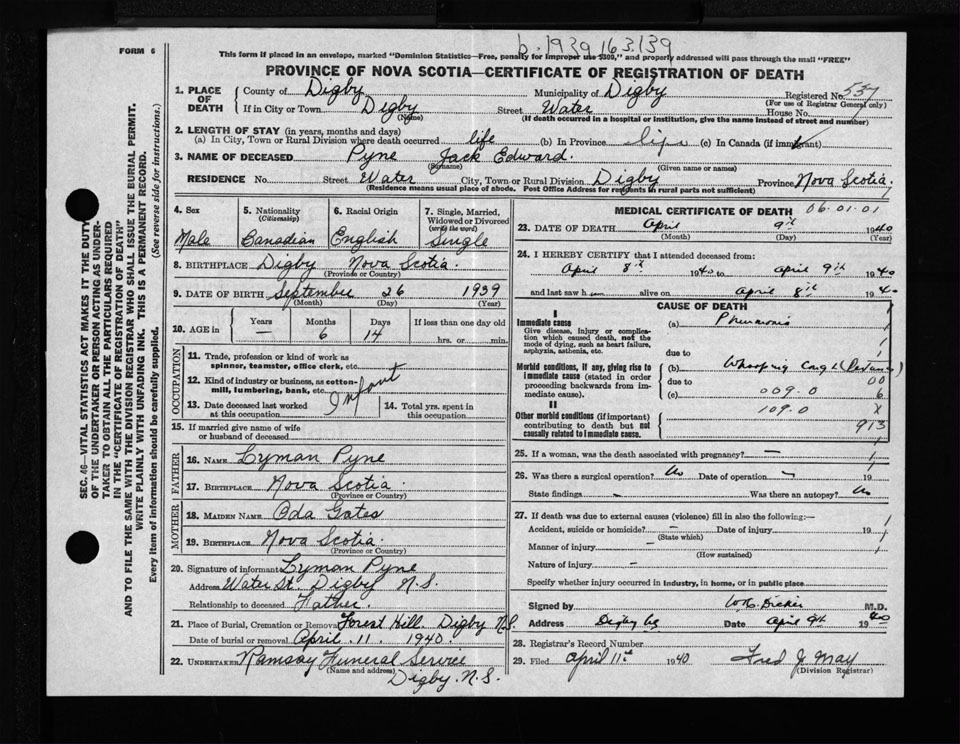 b. 1939 163139
FORM 6
This form if placed in an envelope, marked "Dominion Statistics—Free, penalty for improper use $300," and properly addressed will pass through the mail "FREE"
PROVINCE OF NOVA SCOTIA—CERTIFICATE OF REGISTRATION OF DEATH
1. PLACE OF DEATH County of Digby Municipality of Digby Registered No. 537
(For use of Registrar General only)
If in City or Town Digby Street Water House No.
(Name)
(If death occurred in a hospital or institution, give the name instead of street and number)
2. LENGTH OF STAY (in years, months and days)
(a) In City, Town or Rural Division where death occurred life (b) In Province life (c) In Canada (if immigrant)
3. NAME OF DECEASED Pyne Jack Edward.
(Surname) (Given name or names)
RESIDENCE No. Street Water City, Town or Rural Division Digby Province Nova Scotia.
(Residence means usual place of abode. Post Office Address for residents in rural parts not sufficient)
SEC. 46—VITAL STATISTICS ACT MAKES IT THE DUTY
OF THE UNDERTAKER OR PERSON ACTING AS UNDER-
TAKER TO OBTAIN ALL THE PARTICULARS REQUIRED
IN THE "CERTIFICATE OF REGISTRATION OF DEATH"
AND TO FILE THE SAME WITH THE DIVISION REGISTRAR WHO SHALL ISSUE THE BURIAL PERMIT.
WRITE PLAINLY WITH UNFADING INK. THIS IS A PERMANENT RECORD.
Every item of information should be carefully supplied. (See reverse side for instructions.)
4. Sex 5. Nationality (Citizenship) 6. Racial Origin 7. Single, Married, Widowed or Divorced (write the word)
Male Canadian English Single
8. BIRTHPLACE Digby Nova Scotia.
(Province or Country)
9. DATE OF BIRTH September 26 1939
(Month) (Day) (Year)
10. AGE in Years Months Days If less than one day old
— 6 14 hrs. or min.
OCCUPATION
11. Trade, profession or kind of work as spinner, teamster, office clerk, etc.
12. Kind of industry or business, as cotton-mill, lumbering, bank, etc. Infant
13. Date deceased last worked at this occupation
14. Total yrs. spent in this occupation
15. If married give name of wife or husband of deceased
FATHER
16. NAME Lyman Pyne
17. BIRTHPLACE Nova Scotia
(Province or Country)
MOTHER
18. MAIDEN NAME Oda Gates
19. BIRTHPLACE Nova Scotia.
(Province or Country)
20. Signature of informant Lyman Pyne
Address Water St. Digby N.S.
Relationship to deceased Father.
21. Place of Burial, Cremation or Removal Forest Hill. Digby N.S.
Date of burial or removal April. 11. 1940.
22. UNDERTAKER Ramsay Funeral Service
(Name and address)
Digby. N.S.
MEDICAL CERTIFICATE OF DEATH 06.01.01
23. DATE OF DEATH April 9th 1940
(Month) (Day) (Year)
24. I HEREBY CERTIFY that I attended deceased from:
April 8th 1940 to April 9th 1940
and last saw h alive on April 8th 1940
CAUSE OF DEATH
I
Immediate cause
Give disease, injury or complication which caused death, not the mode of dying, such as heart failure, asphyxia, asthenia, etc.
(a) Pneumonia
due to
Morbid conditions, if any, giving rise to immediate cause (stated in order proceeding backwards from immediate cause).
(b) Whooping Cough
due to 00
(c) 009.0 6
II
109.0 X
Other morbid conditions (if important) contributing to death but not causally related to immediate cause.
913
25. If a woman, was the death associated with pregnancy? —
26. Was there a surgical operation? No Date of operation — 19
State findings — Was there an autopsy? No
27. If death was due to external causes (violence) fill in also the following:—
Accident, suicide or homicide? — Date of injury 19
(State which)
Manner of injury —
(How sustained)
Nature of injury —
Specify whether injury occurred in industry, in home, or in public place
Signed by M.D.
Address Digby NS Date April 9th 1940
28. Registrar's Record Number
29. Filed April 11th 1940 Fred J. May
(Division Registrar)